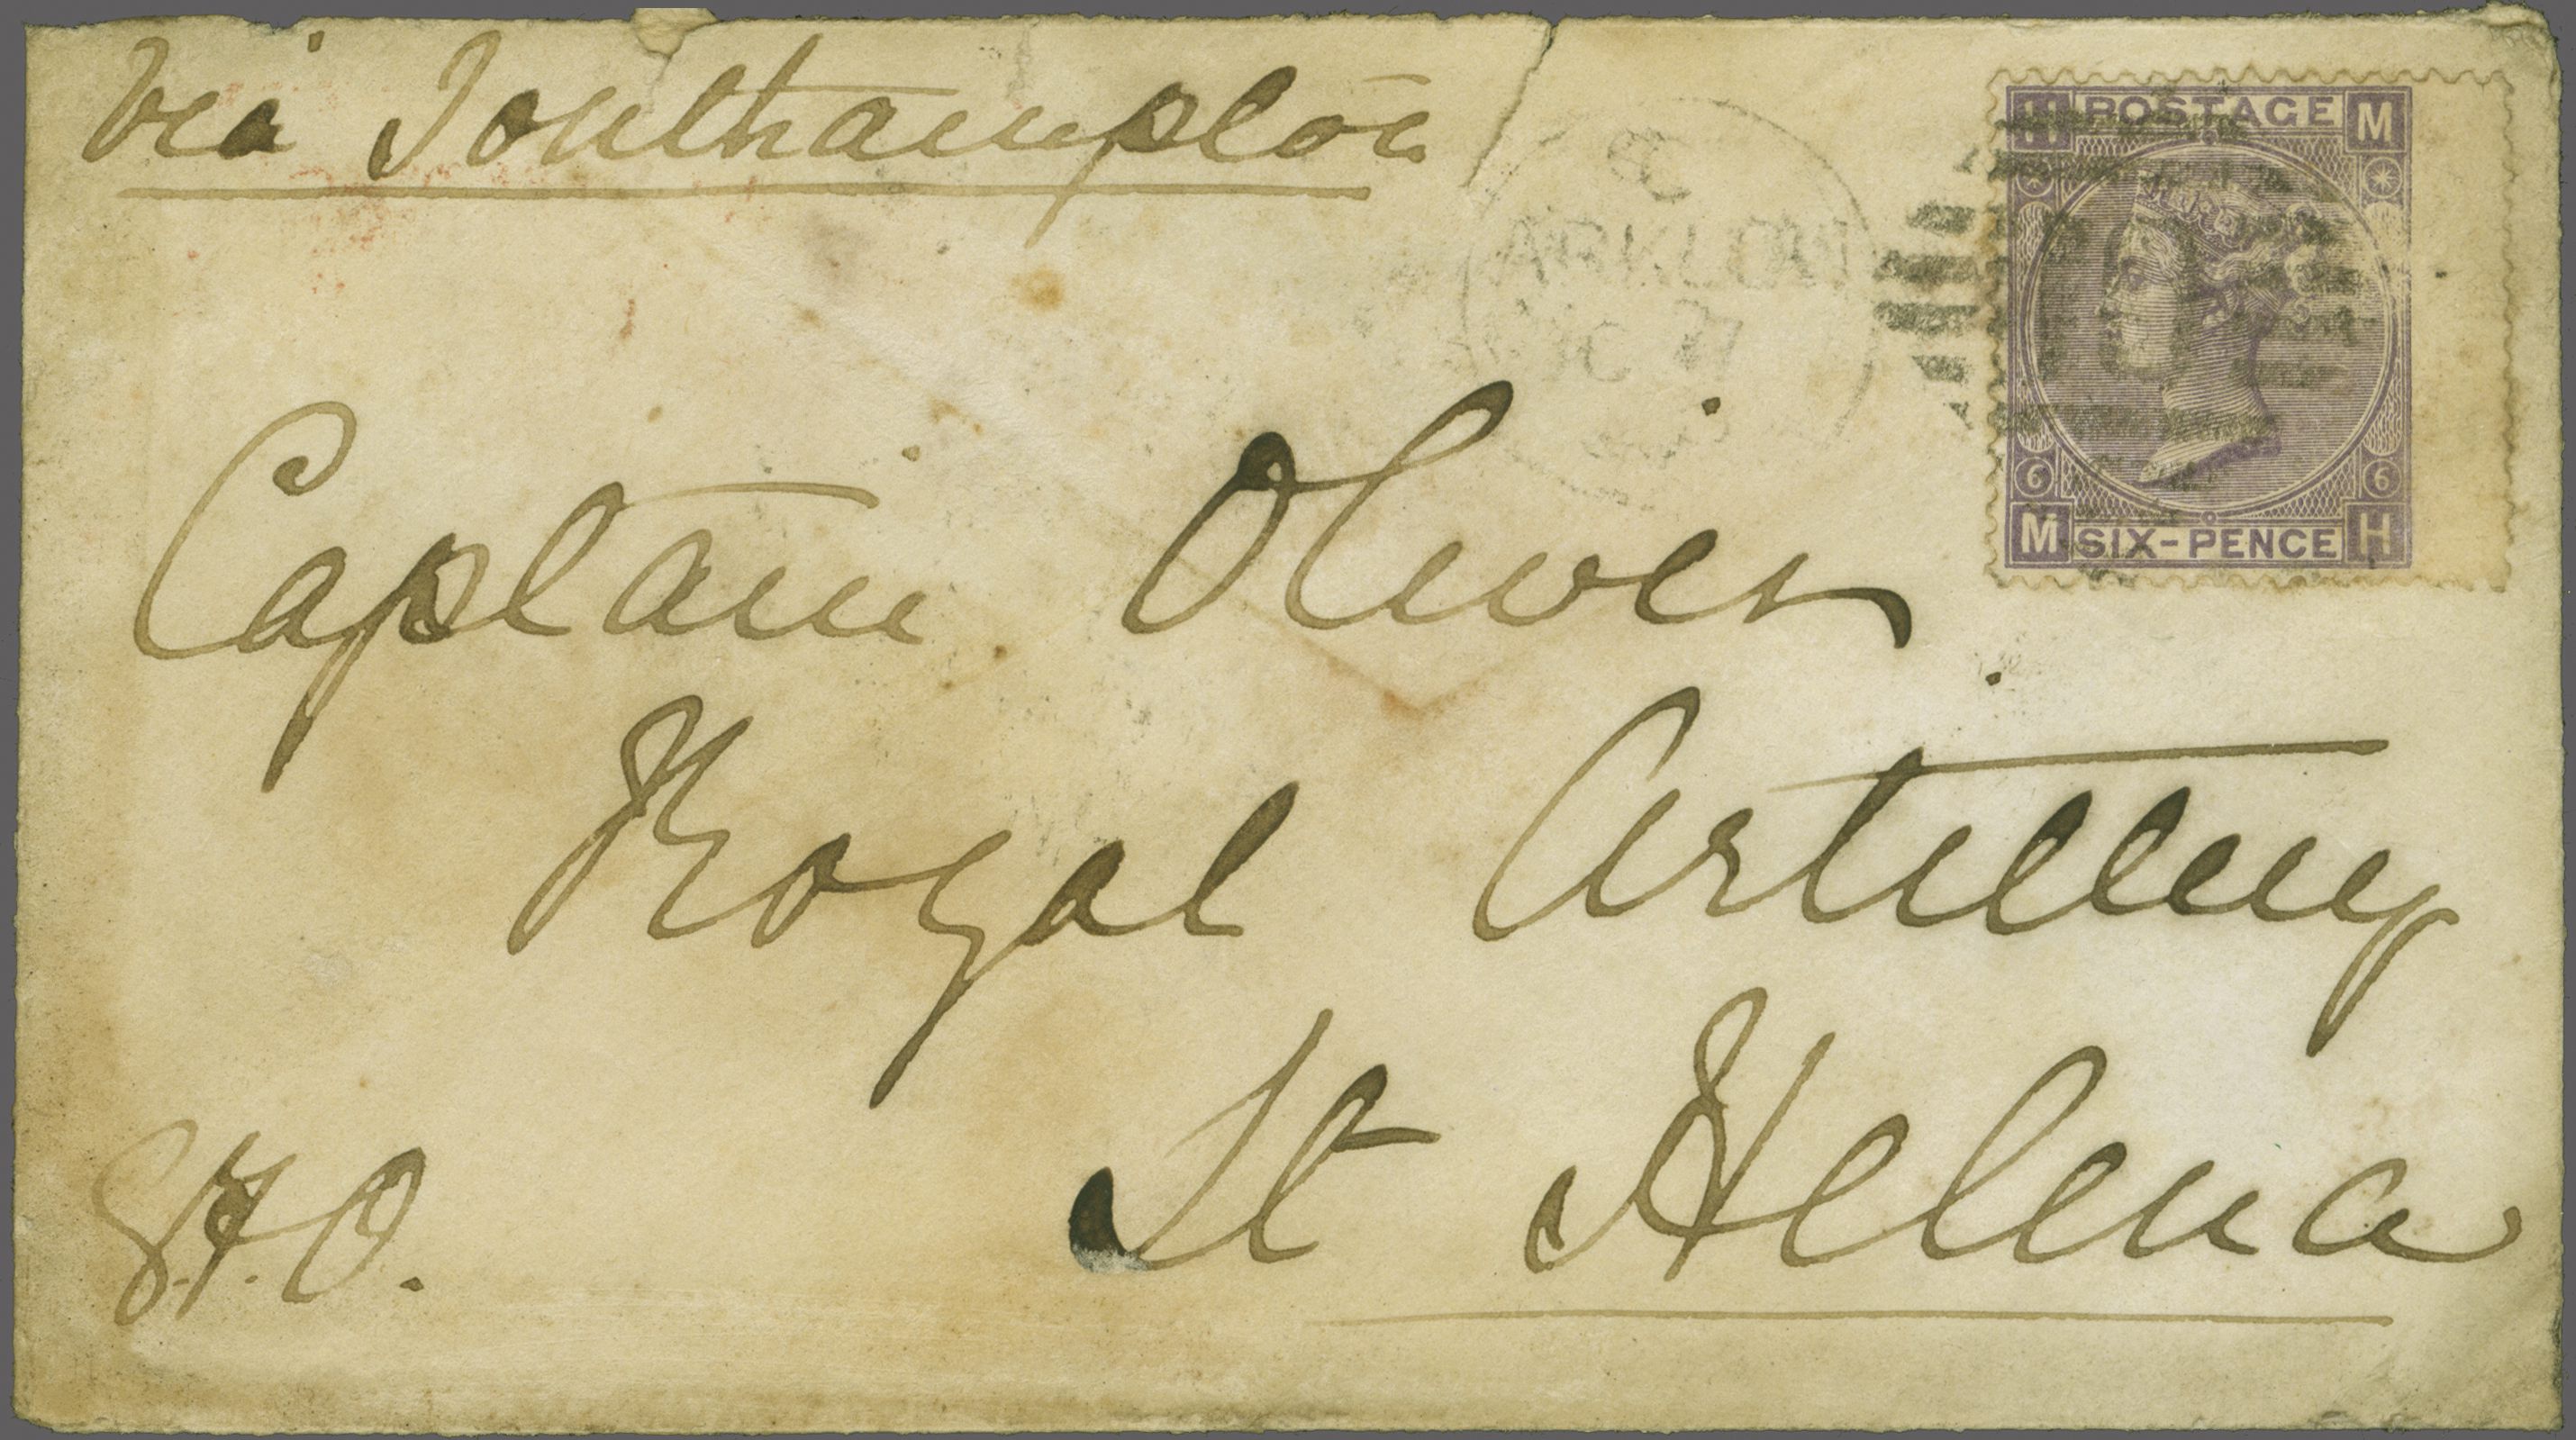 via Southampton
H POSTAGE M
6 6
M SIX-PENCE H
Captain Oliver
Royal Artillery
St Helena
S.H.O.